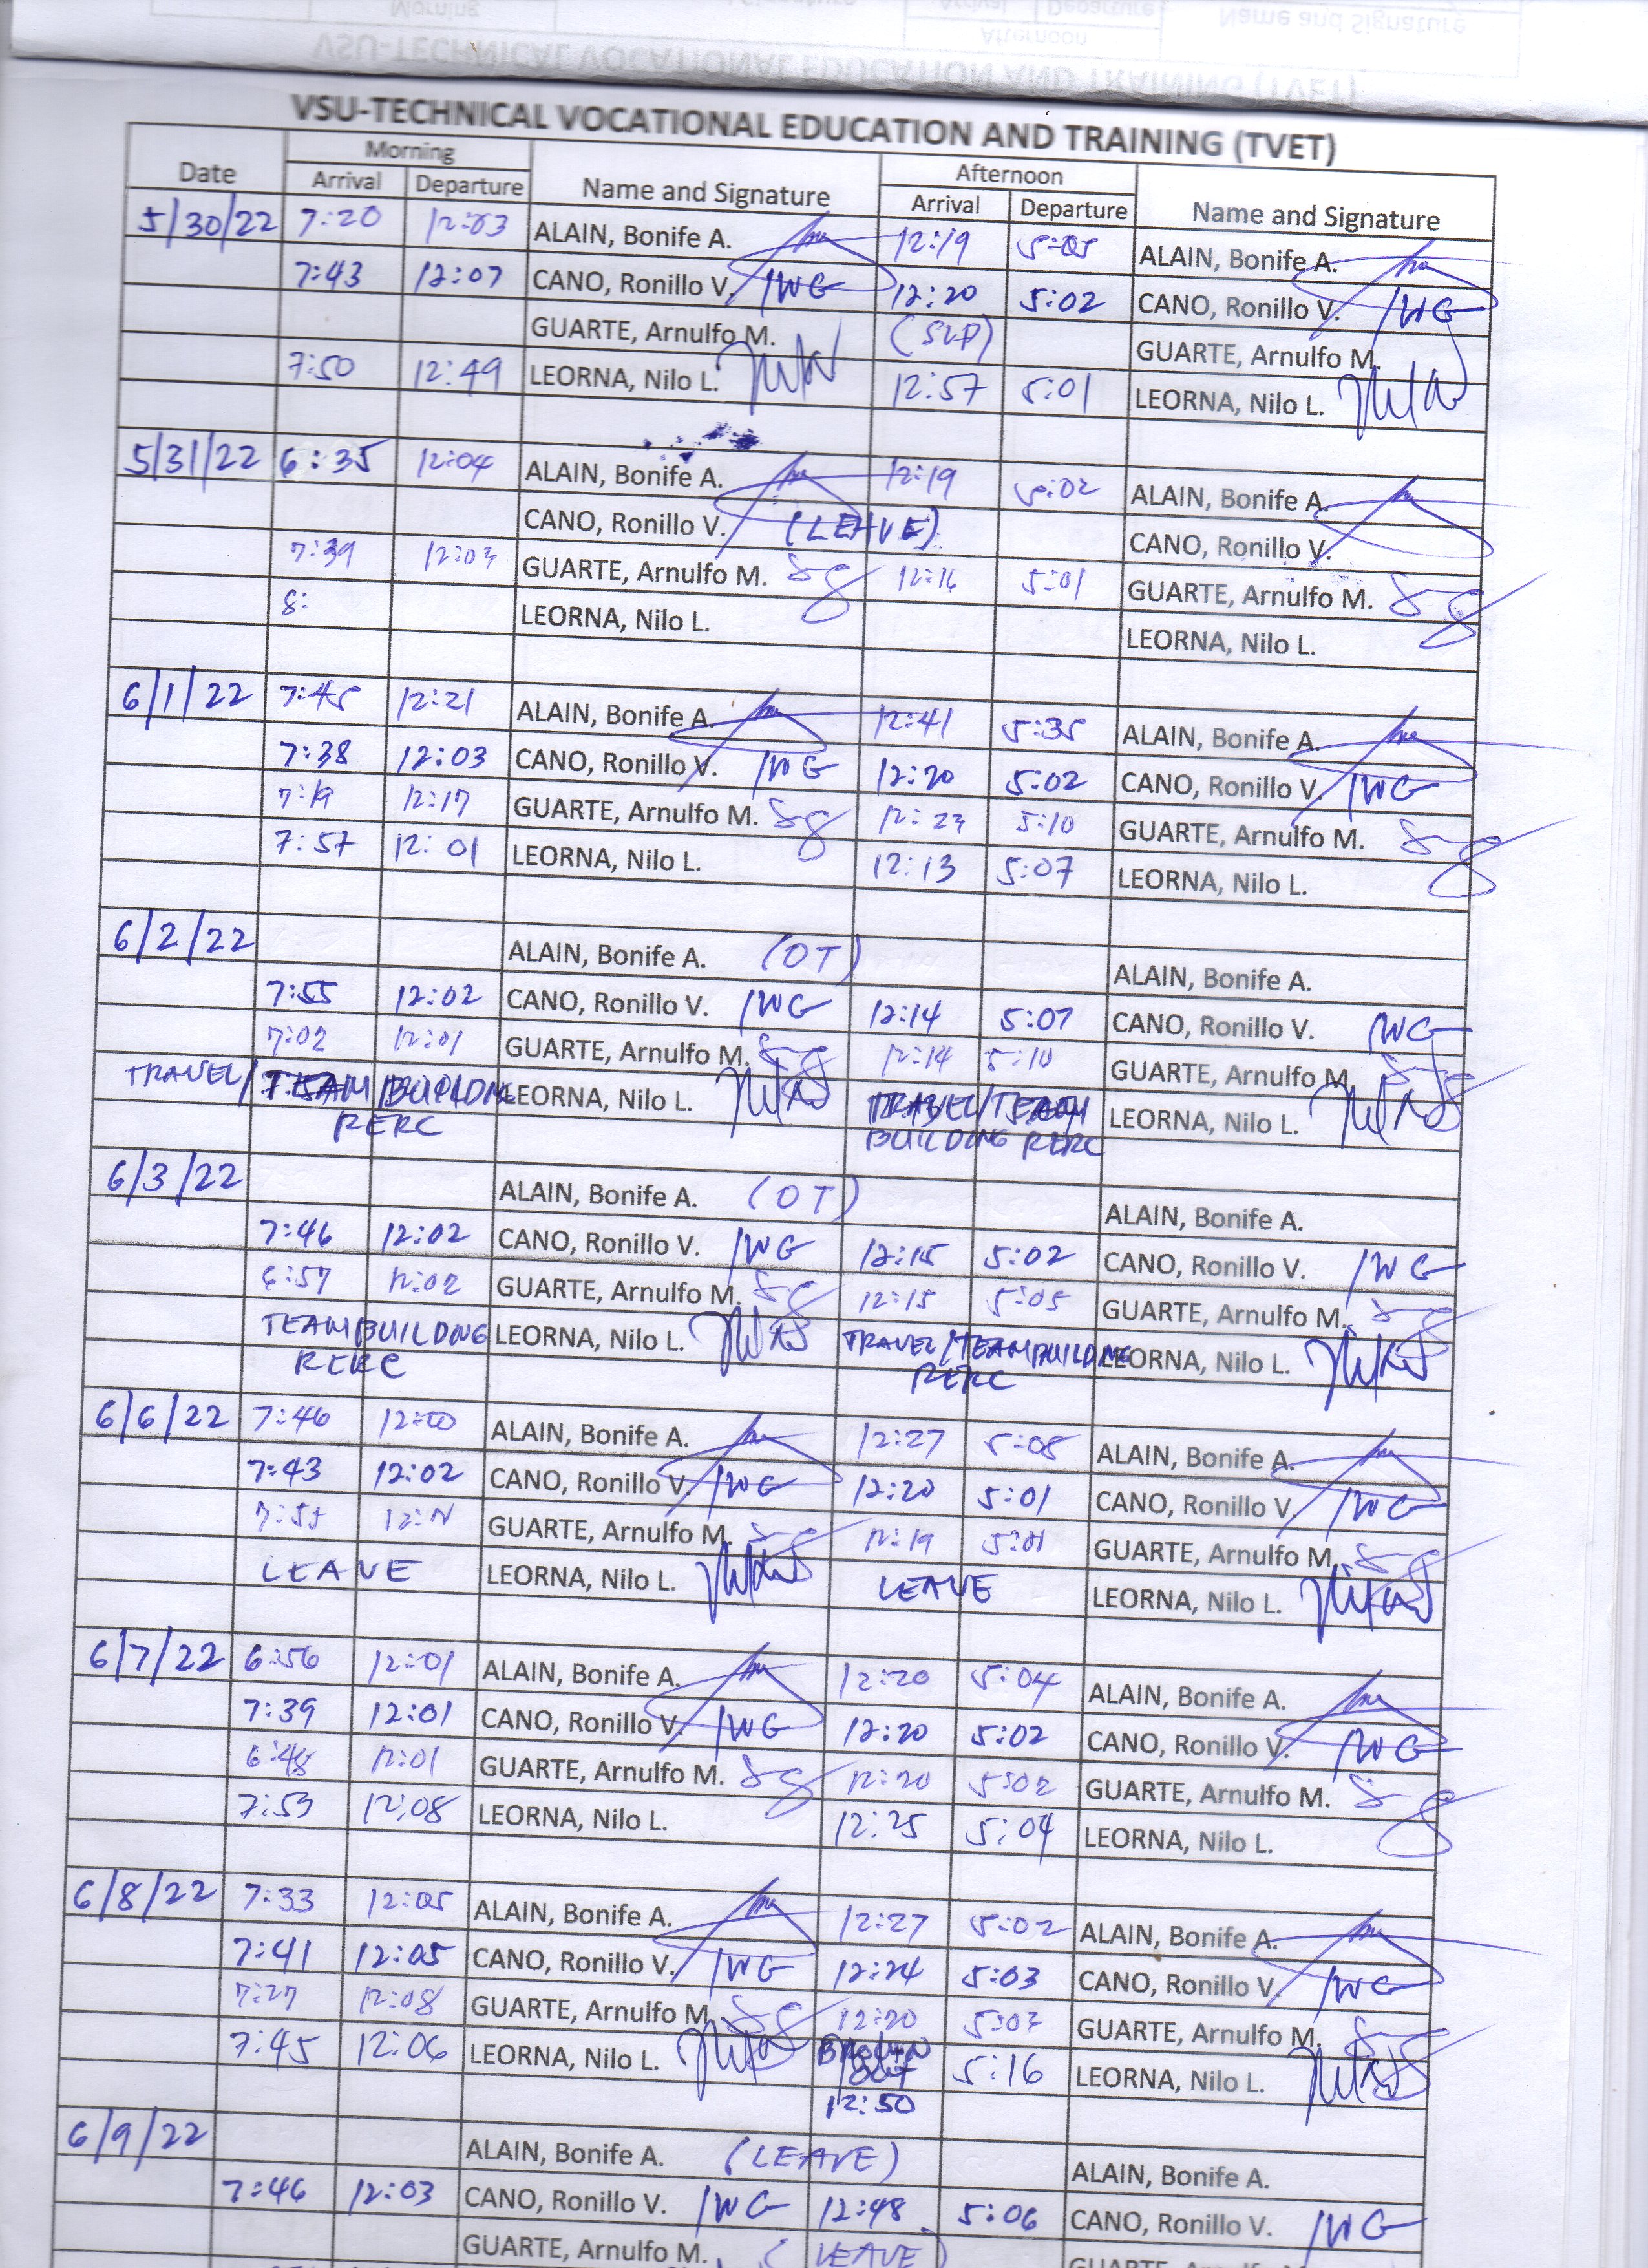 VSU-TECHNICAL VOCATIONAL EDUCATION AND TRAINING (TVET)
Date Morning Name and Signature Afternoon Name and Signature
Arrival Departure Arrival Departure
5/30/22 7:20 12:03 ALAIN, Bonife A. 12:19 5:05 ALAIN, Bonife A.
7:43 12:07 CANO, Ronillo V. 12:20 5:02 CANO, Ronillo V.
GUARTE, Arnulfo M. (SLP) GUARTE, Arnulfo M.
7:50 12:49 LEORNA, Nilo L. 12:57 5:01 LEORNA, Nilo L.
5/31/22 6:35 12:04 ALAIN, Bonife A. 12:19 5:02 ALAIN, Bonife A.
CANO, Ronillo V. (LEAVE) CANO, Ronillo V.
7:39 12:03 GUARTE, Arnulfo M. 12:16 5:01 GUARTE, Arnulfo M.
8: LEORNA, Nilo L. LEORNA, Nilo L.
6/1/22 7:45 12:21 ALAIN, Bonife A. 12:41 5:35 ALAIN, Bonife A.
7:38 12:03 CANO, Ronillo V. 12:20 5:02 CANO, Ronillo V.
7:19 12:17 GUARTE, Arnulfo M. 12:23 5:10 GUARTE, Arnulfo M.
7:57 12:01 LEORNA, Nilo L. 12:13 5:07 LEORNA, Nilo L.
6/2/22 ALAIN, Bonife A. (OT) ALAIN, Bonife A.
7:55 12:02 CANO, Ronillo V. 12:14 5:07 CANO, Ronillo V.
7:02 12:01 GUARTE, Arnulfo M. 12:14 5:10 GUARTE, Arnulfo M.
TRAVEL/TEAM BUILDING LEORNA, Nilo L. TRAVEL/TEAM LEORNA, Nilo L.
RERC BUILDING RERC
6/3/22 ALAIN, Bonife A. (OT) ALAIN, Bonife A.
7:46 12:02 CANO, Ronillo V. 12:15 5:02 CANO, Ronillo V.
6:57 12:02 GUARTE, Arnulfo M. 12:15 5:05 GUARTE, Arnulfo M.
TEAMBUILDING LEORNA, Nilo L. TRAVEL/TEAMBUILDING LEORNA, Nilo L.
RERC RERC
6/6/22 7:46 12:00 ALAIN, Bonife A. 12:27 5:08 ALAIN, Bonife A.
7:43 12:02 CANO, Ronillo V. 12:20 5:01 CANO, Ronillo V.
7:55 GUARTE, Arnulfo M. 12:19 5:01 GUARTE, Arnulfo M.
LEAVE LEORNA, Nilo L. LEAVE LEORNA, Nilo L.
6/7/22 6:56 12:01 ALAIN, Bonife A. 12:20 5:04 ALAIN, Bonife A.
7:39 12:01 CANO, Ronillo V. 12:20 5:02 CANO, Ronillo V.
6:48 12:01 GUARTE, Arnulfo M. 12:20 5:02 GUARTE, Arnulfo M.
7:53 12:08 LEORNA, Nilo L. 12:25 5:04 LEORNA, Nilo L.
6/8/22 7:33 12:05 ALAIN, Bonife A. 12:27 5:02 ALAIN, Bonife A.
7:41 12:05 CANO, Ronillo V. 12:24 5:03 CANO, Ronillo V.
7:27 12:08 GUARTE, Arnulfo M. 12:20 5:03 GUARTE, Arnulfo M.
7:45 12:06 LEORNA, Nilo L. BROWN OUT 5:16 LEORNA, Nilo L.
12:50
6/9/22 ALAIN, Bonife A. (LEAVE) ALAIN, Bonife A.
7:46 12:03 CANO, Ronillo V. 12:48 5:06 CANO, Ronillo V.
GUARTE, Arnulfo M. (LEAVE)